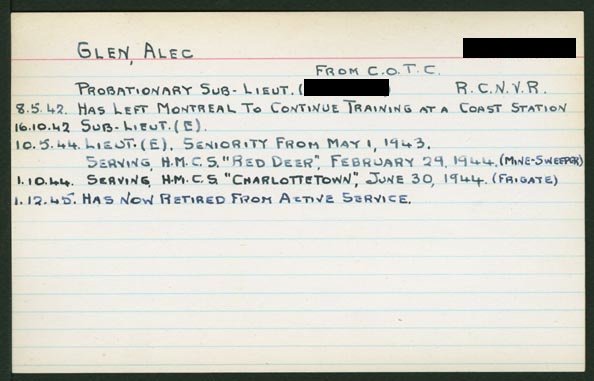 GLEN, ALEC
FROM C.O.T.C.
PROBATIONARY SUB-LIEUT. ( ) R.C.N.V.R.
8.5.42. HAS LEFT MONTREAL TO CONTINUE TRAINING AT A COAST STATION
16.10.42 SUB-LIEUT. (E).
10.5.44. LIEUT. (E). SENIORITY FROM MAY 1, 1943.
SERVING, H.M.C.S. "RED DEER", FEBRUARY 29, 1944. (MINE-SWEEPER)
1.10.44. SERVING, H.M.C.S. "CHARLOTTETOWN", JUNE 30, 1944. (FRIGATE)
1.12.45. HAS NOW RETIRED FROM ACTIVE SERVICE.